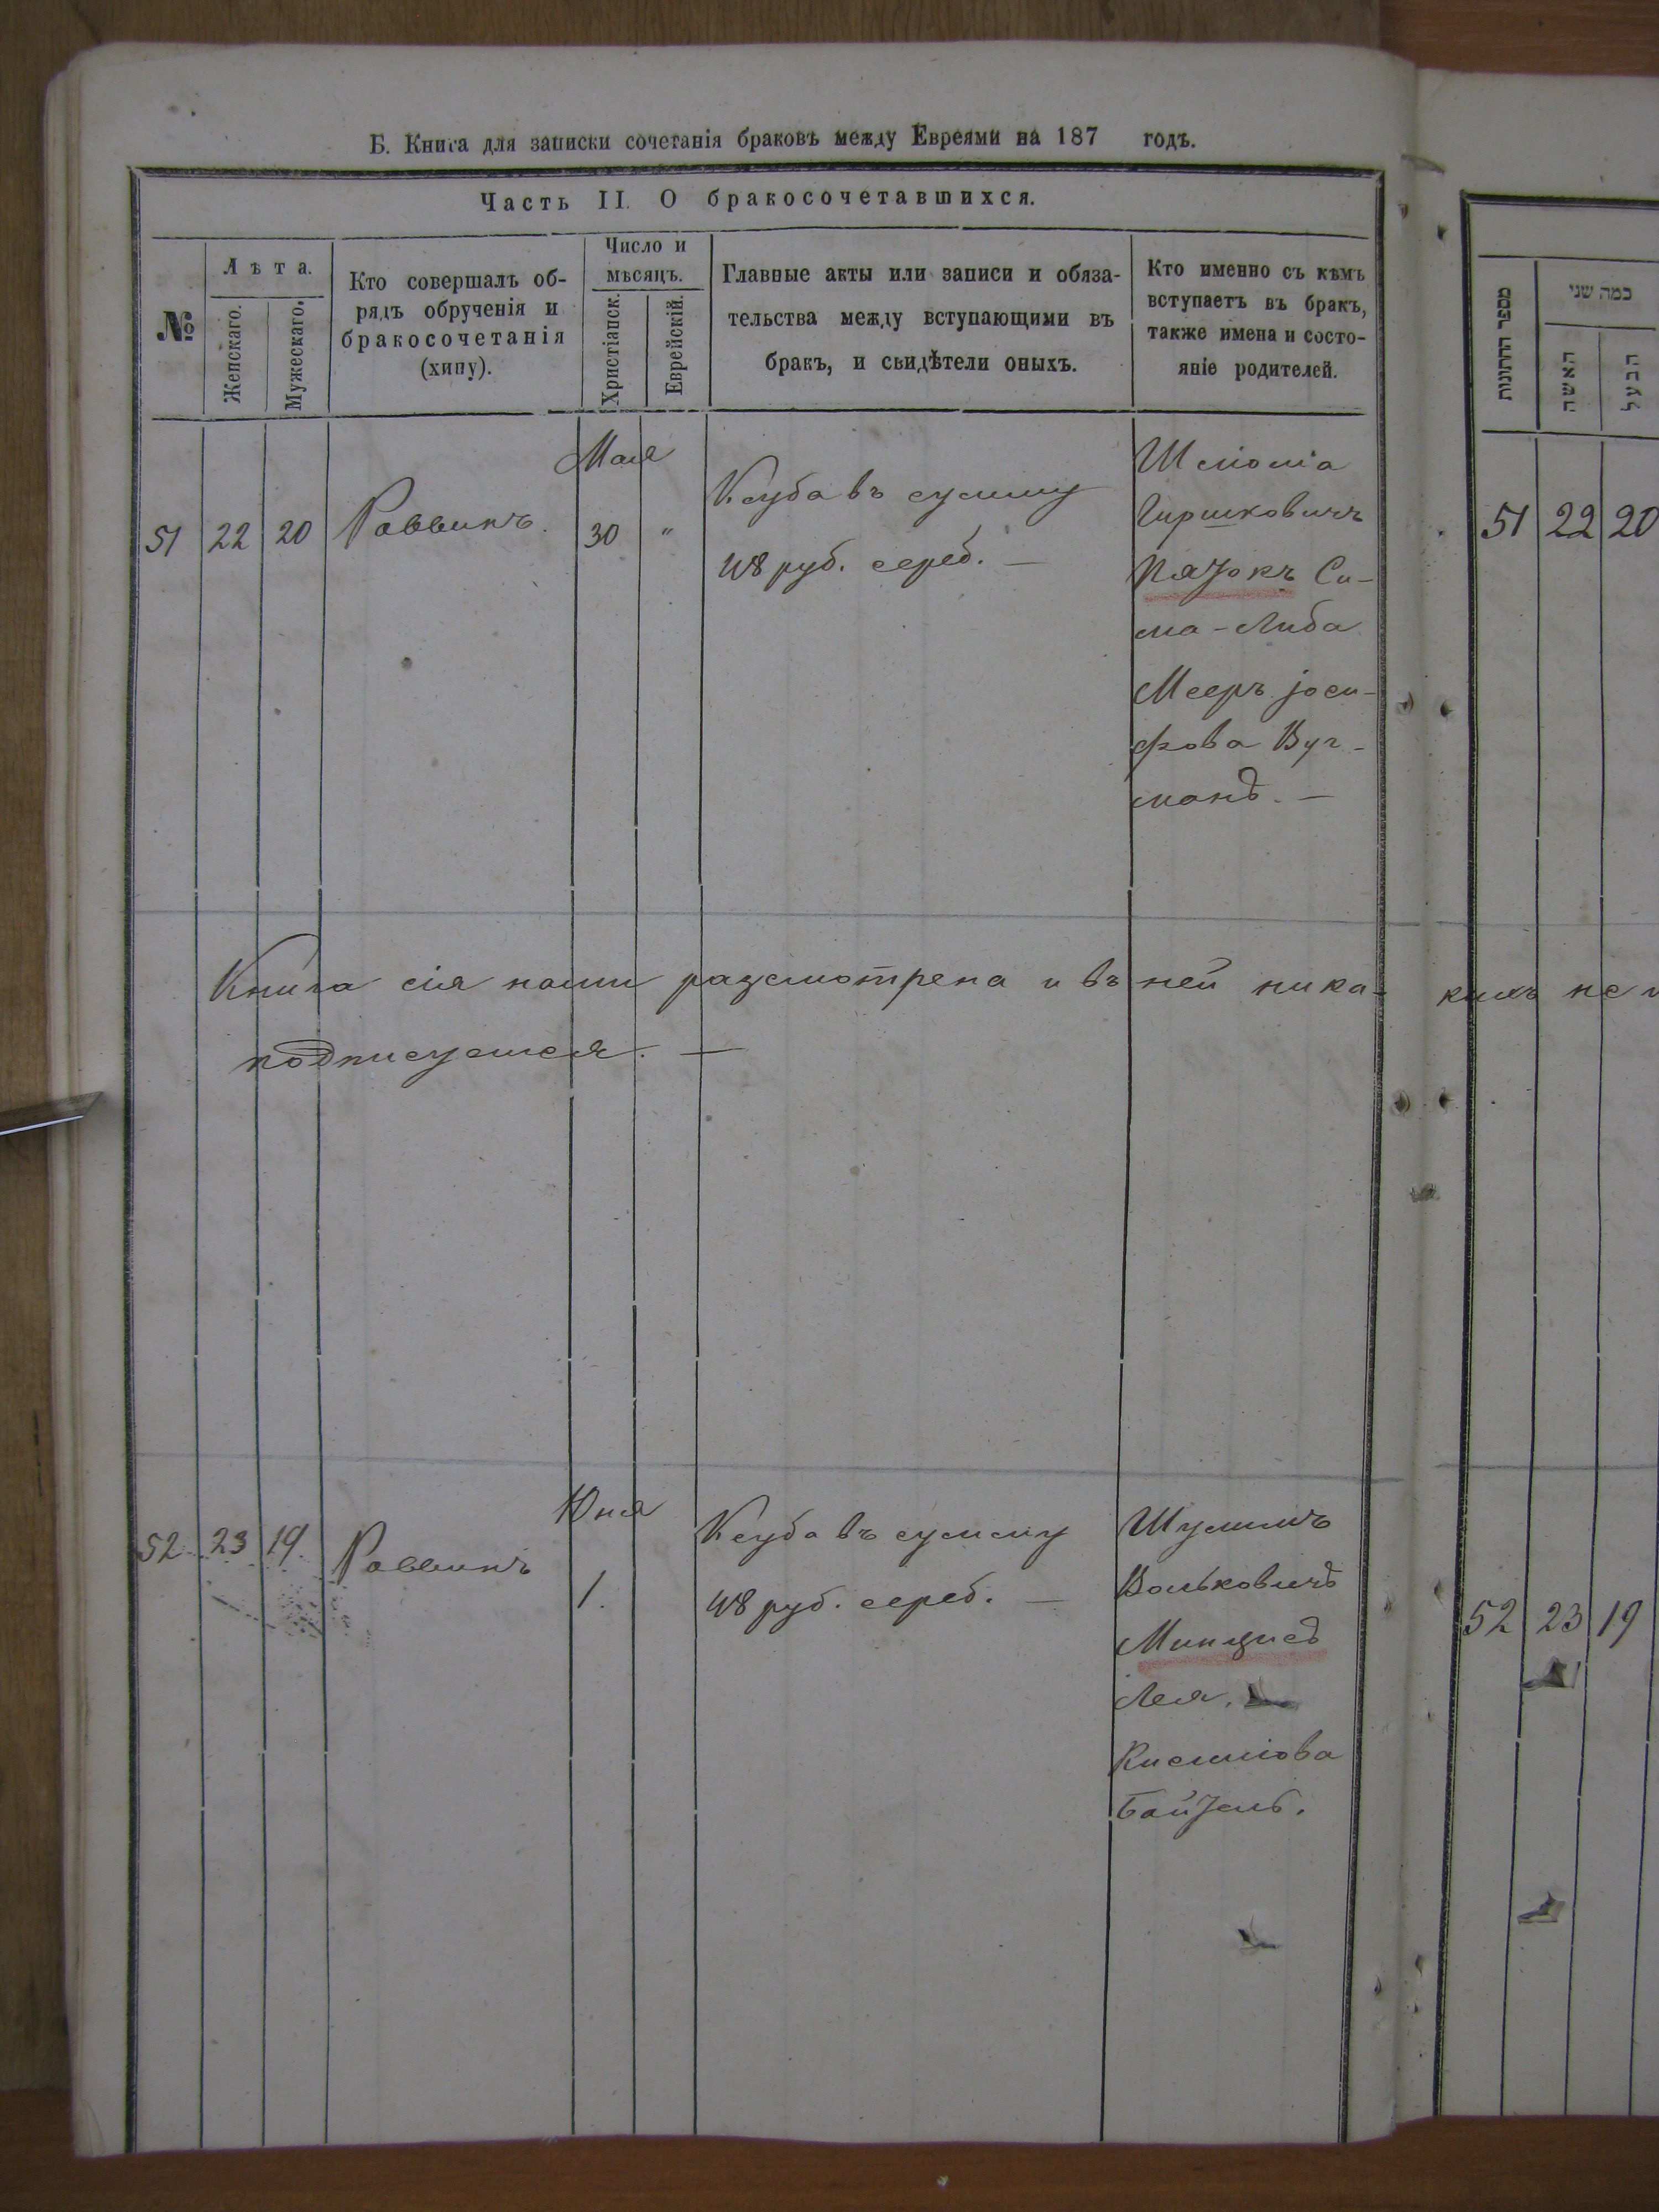 Б. Книга для записки сочетанія браковъ между Евреями на 187 годъ.
Часть II. О бракосочетавшихся.
№
Лѣта.
Женскаго.
Мужескаго.
Кто совершалъ об-
рядъ обрученія и
бракосочетанія
(хипу).
Число и
мѣсяцъ.
Христіанск.
Еврейскій.
Главные акты или записи и обяза-
тельства между вступающими въ
бракъ, и свидѣтели оныхъ.
Кто именно съ кѣмъ
вступаетъ въ бракъ,
также имена и состо-
яніе родителей.
מספר החתונות
כמה שני
האשה
הבעל
51 22 20 Раввинъ.
Мая
30 "
Ксуба въ сумму
48 руб. сереб. —
Гиршковичъ
Пязокъ Си-
ма-Либа
Мееръ Jоси-
фова Вуг-
манъ. —
51 22 20
Книга сія нами разсмотрена и въ ней ника-
кихъ не
подписуемся. —
52 23 19. Раввинъ
Юня
1.
Ксуба въ сумму
48 руб. сереб. —
Шулимъ
Вольковичъ
Минцисъ
Лея.
Байзелъ.
52 23 19